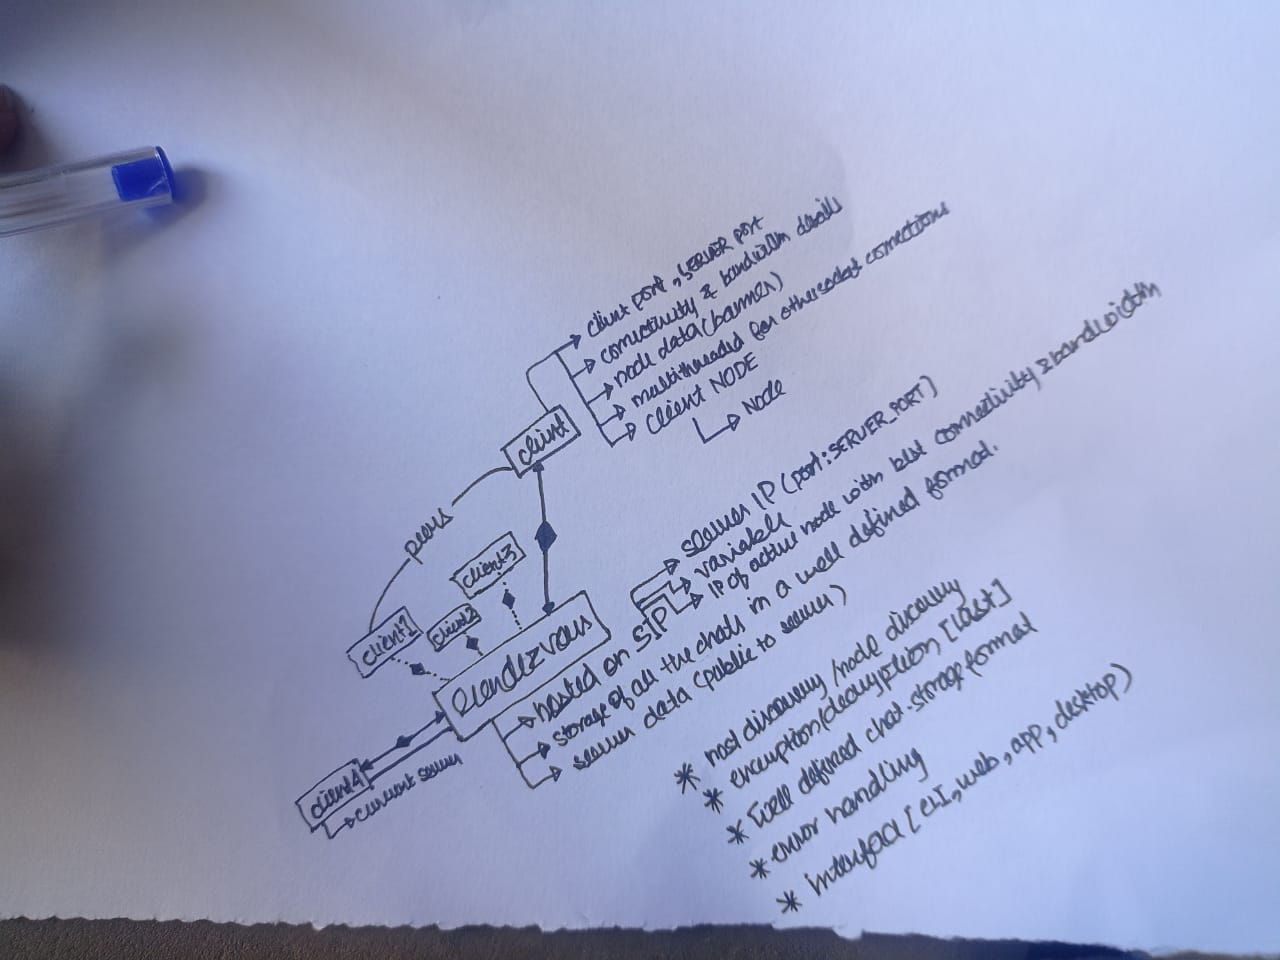 client port, SERVER port
connectivity & bandwidth details
node data (banner)
multithreaded for other connections
client NODE
Node
client
peers
client3
client2
client1
Rendezvous
server IP (port: SERVER_PORT)
variable
IP of active node with best connectivity & bandwidth
hosted on SIP
storage of all the chats in a well defined format.
server data (public to server)
client4
current server
* host discovery/node discovery
* encryption/decryption [last]
* well defined chat-storage format
* error handling
* interface [CLI, web, app, desktop)